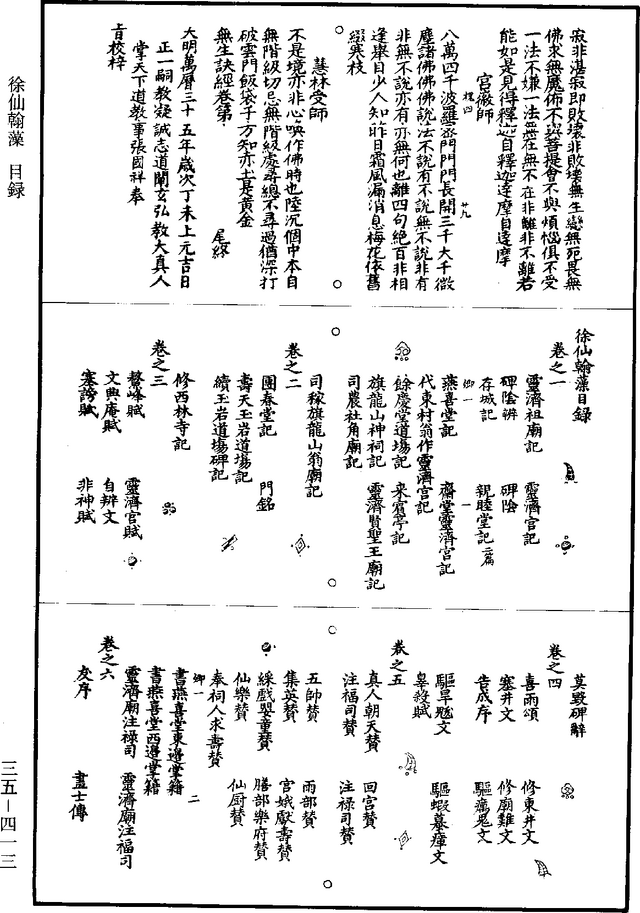 寂非湛寂即敗壞非敗壞無生戀無死畏無
佛求無魔怖不與菩提會不與煩惱俱不受
一法不嫌一法無在無不在非離非不離若
能如是見得釋迦自釋迦達摩自達摩
宮薇師
槐四
廿九
八萬四千波羅蜜門門門長開三千大千微
塵諸佛佛佛說法不說有不說無不說非有
非無不說亦有亦無何也離四句絕百非相
逢舉目少人知昨日霜風漏消息梅花依舊
綴寒枝
慧林受師
不是境亦非心喚作佛時也陸沉個中本自
無階級切忌無階級處尋總不尋過猶深打
破雲門飯袋子方知赤土是黃金
無生訣經卷第
尾終
大明萬曆三十五年歲次丁未上元吉日
正一嗣教凝誠志道闡玄弘教大真人
掌天下道教事張國祥奉
旨校梓
徐仙翰藻目錄
卷之一
靈濟祖廟記
靈濟宮記
碑陰辨
碑陰
存城記
親睦堂記二篇
御一
一
燕喜堂記
齋堂靈濟宮記
代東村翁作靈濟宮記
餘慶堂道場記
來賓亭記
旗龍山神祠記
靈濟賢聖王廟記
司農社角廟記
司稼旗龍山翁廟記
卷之二
團春堂記
門銘
壽天玉岩道場記
續玉岩道場碑記
修西林寺記
卷之三
鰲峰賦
靈濟宮賦
文興庵賦
自辨文
塞謗賦
非神賦
莫毀碑辭
卷之四
喜雨頌
修東井文
塞井文
修廟難文
告成序
驅癘鬼文
驅旱魃文
驅蝦蟇瘴文
旱殺賦
卷之五
真人朝天贊
回宮贊
注福司贊
注祿司贊
五帥贊
雨部贊
集英贊
宮娥獻壽贊
綵戲嬰童贊
膳部樂府贊
仙樂贊
仙厨贊
奉祠人求壽贊
御一
二
書燕喜堂東邊掌籍
書燕喜堂西邊掌籍
靈濟廟注祿司
靈濟廟注福司
卷之六
友序
畫士傳
徐仙翰藻 目錄
三五-四一三